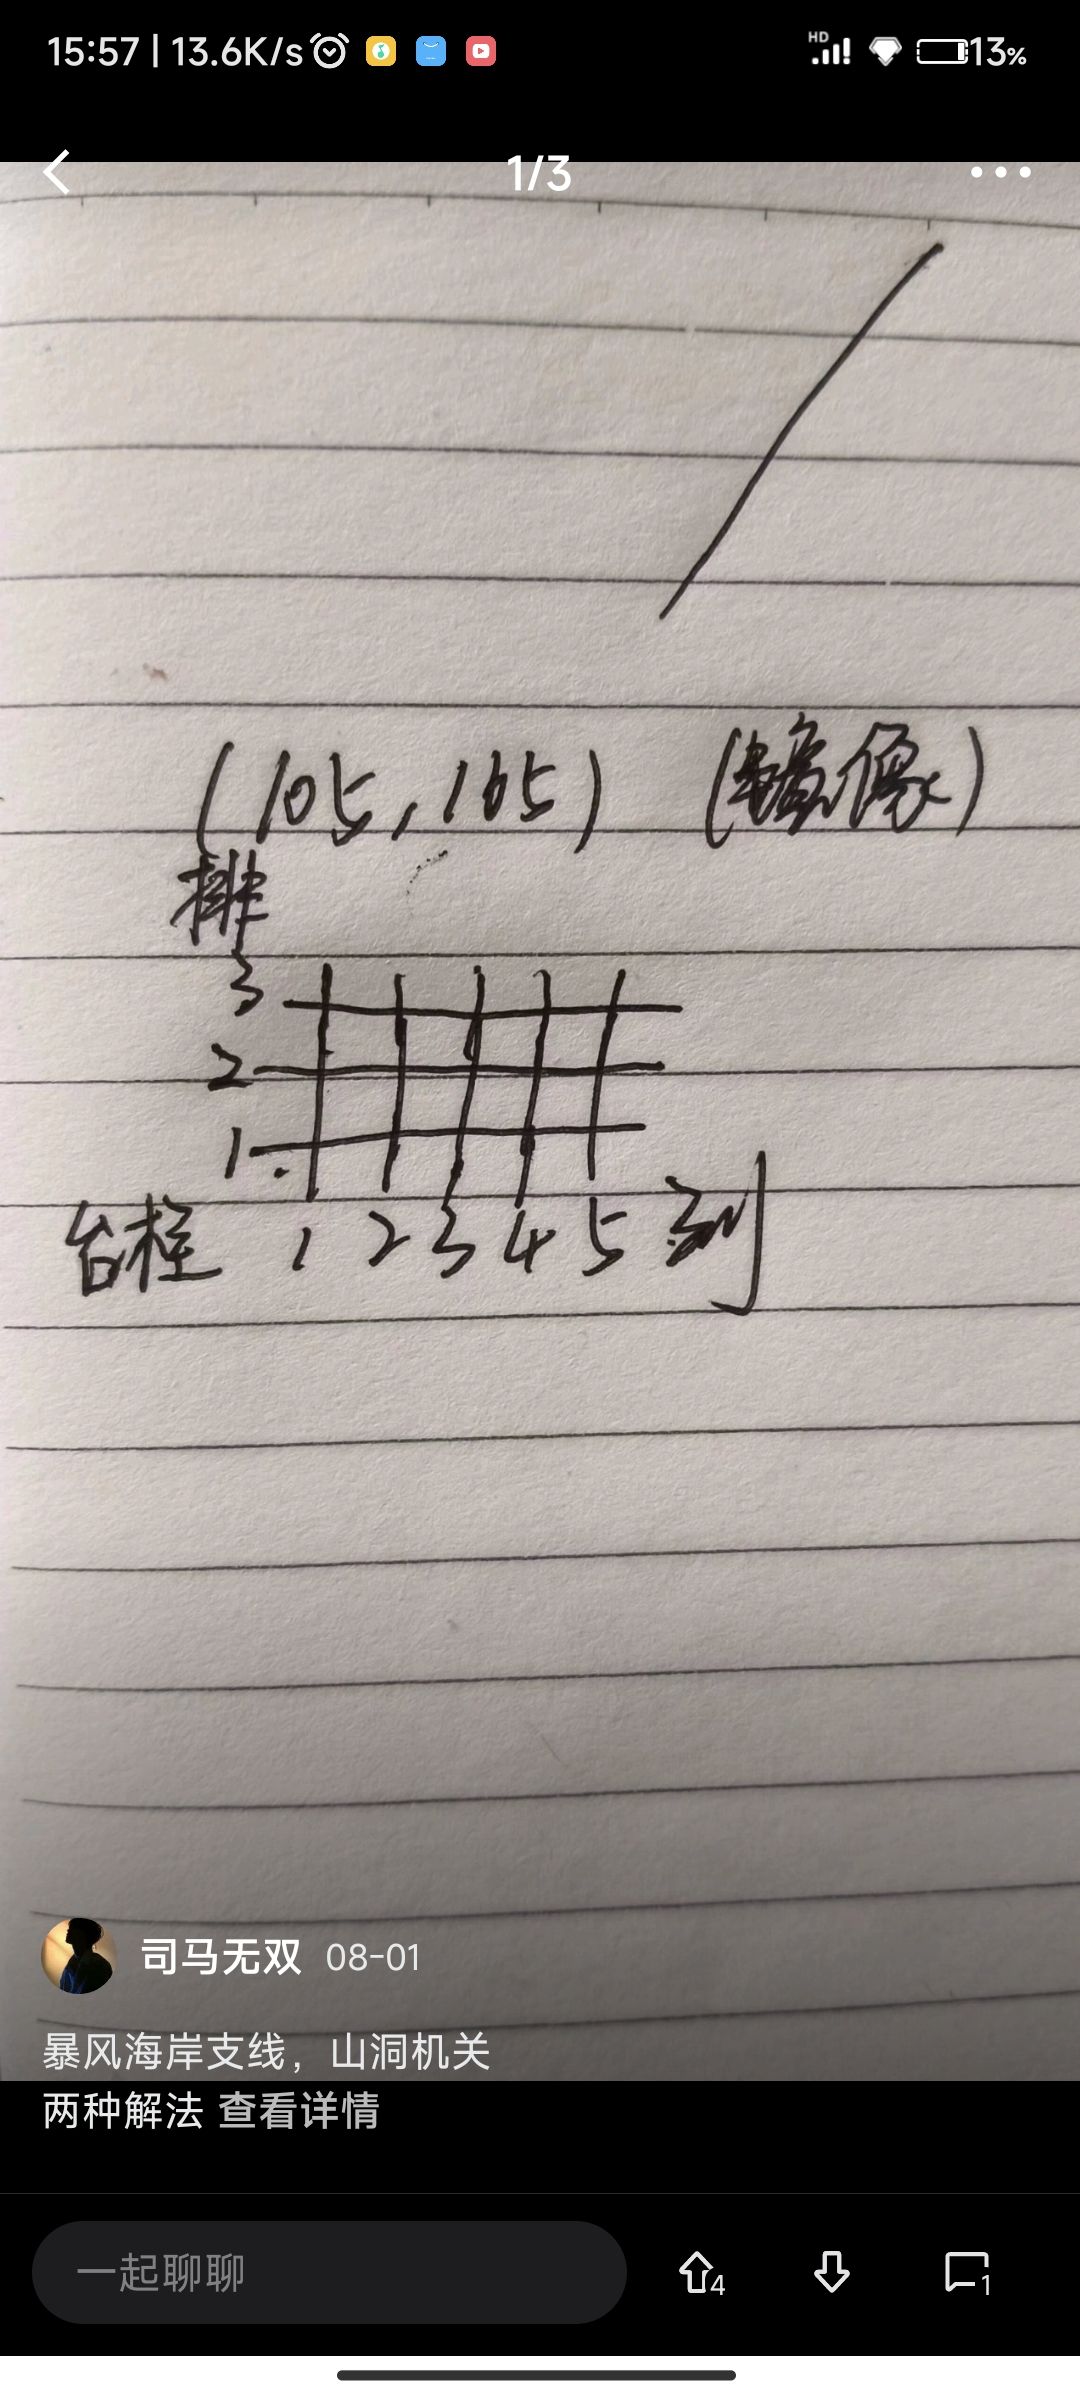 15:57 | 13.6K/s
HD
13%
1/3
(105,165) (镜像)
排
3
2
1
台柱 1 2 3 4 5 列
司马无双 08-01
暴风海岸支线，山洞机关
两种解法 查看详情
一起聊聊
4
1